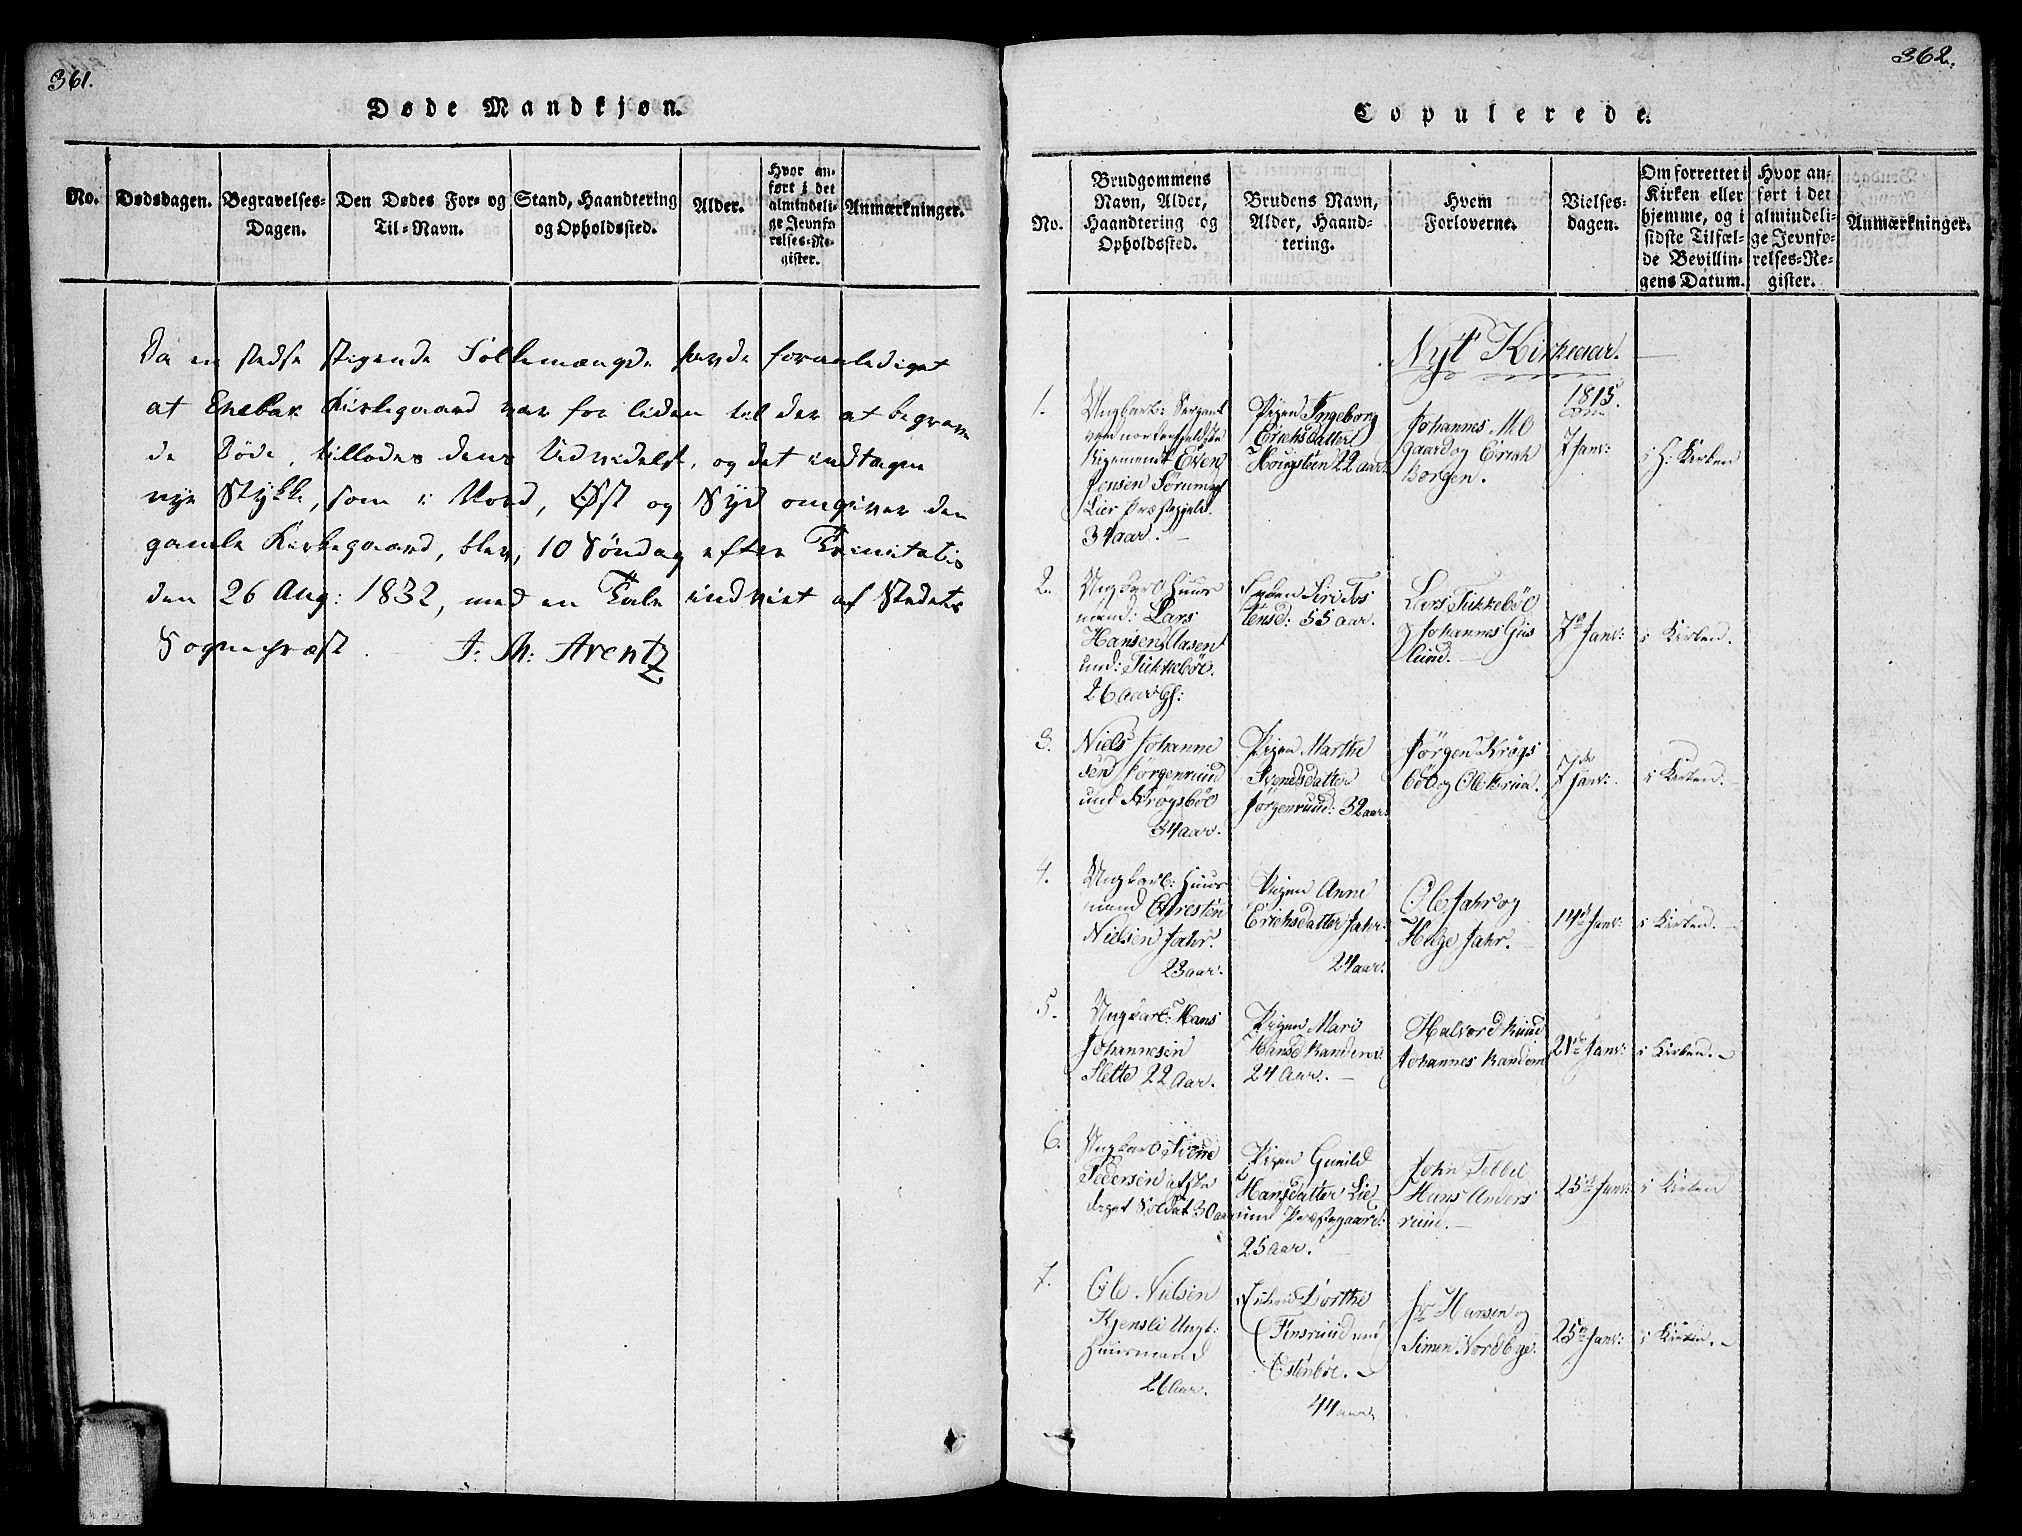 361.
Døde Mandkjøn.
No.
Dødsdagen.
Begravelses-
Dagen.
Den Dødes For- og
Til-Navn.
Stand, Haandtering
og Opholdssted.
Alder.
Hvor an-
ført i det
almindeli-
ge Jevnfø-
relses-Re-
gister.
Anmærkninger.
Da en stedse stigende Folkemængde havde foranlediget
at Enebak Kirkegaard var for liden til der at begrave
de Døde, tillodes dens Udvidelse, og det indtagne
nye Stykke, som i Nord, Øst og Syd omgiver den
gamle Kirkegaard, blev, 10 Søndag efter Trinitatis
den 26 Aug: 1832, med en Tale indviet af Stedets
Sognepræst J: M: Arentz
362.
Copulerede.
No.
Brudgommens
Navn, Alder,
Haandtering og
Opholdssted.
Brudens Navn,
Alder, Haand-
tering.
Hvem
Forloverne.
Vielses-
dagen.
Om forrettet i
Kirken eller
hjemme, og i
sidste Tilfæl-
de Bevillin-
gens Datum.
Hvor an-
ført i det
almindeli-
ge Jevnfø-
relses-Re-
gister.
Anmærkninger.
Nyt Kirkeaar.
1815.
1.
Ungkarl: Sergeant
ved
Regimendt Even
Jensen Sorum af
Lier Præstegjeld.
34 aar.
Pigen Ingeborg
Erichsdatter
22 aar.
Johannes Mo
gaard og Erich
Borgen.
7 Janv:
i H: Kirken
2.
Ungkarl Huus
mand: Lars
Hansen
und: Tukkebøl.
26 aar
Siri Tos
tensd: 55 aar.
Lars Tukkebøl
og Johannes Gis
lund.
7de Janv:
i Kirken.
3.
Niels Johanne
sen Jørgenruud
und Krogsbøl
34 aar.
Pigen Marthe
Svendsdatter
Jørgenruud: 32 aar.
Jørgen Krogs
bøl og Ole
7de Janv:
i Kirken.
4.
Ungkarl: Huus
mand Christen
Nielsen Jahr.
23 aar.
Pigen Anne
Erichsdatter Jahr.
24 aar.
Ole Jahr og
Helge Jahr.
14de Janv:
i Kirken.
5.
Ungkarl: Hans
Johannesen
Slette 22 Aar.
Pigen Mari
Hansd Randem.
24 Aar.
Halvord Ruud
Johannes Randem
21de Janv:
i Kirken.
6.
Ungkarl
Pedersen afske
diget Soldat 30 aar
Pigen Gunild
Hansdatter Lie
und Præstegaard.
25 Aar.
John Tebbel
Hans Anders
ruud.
25de Janv:
i Kirken
7.
Ole Nielsen
Kjensli Ungk:
Huusmand
26 Aar.
Enken Dorthe
Finsruud und
Østenbøe.
44 aar
Hansen og
Simen Nordbye.
25de Janv:
i Kirken.